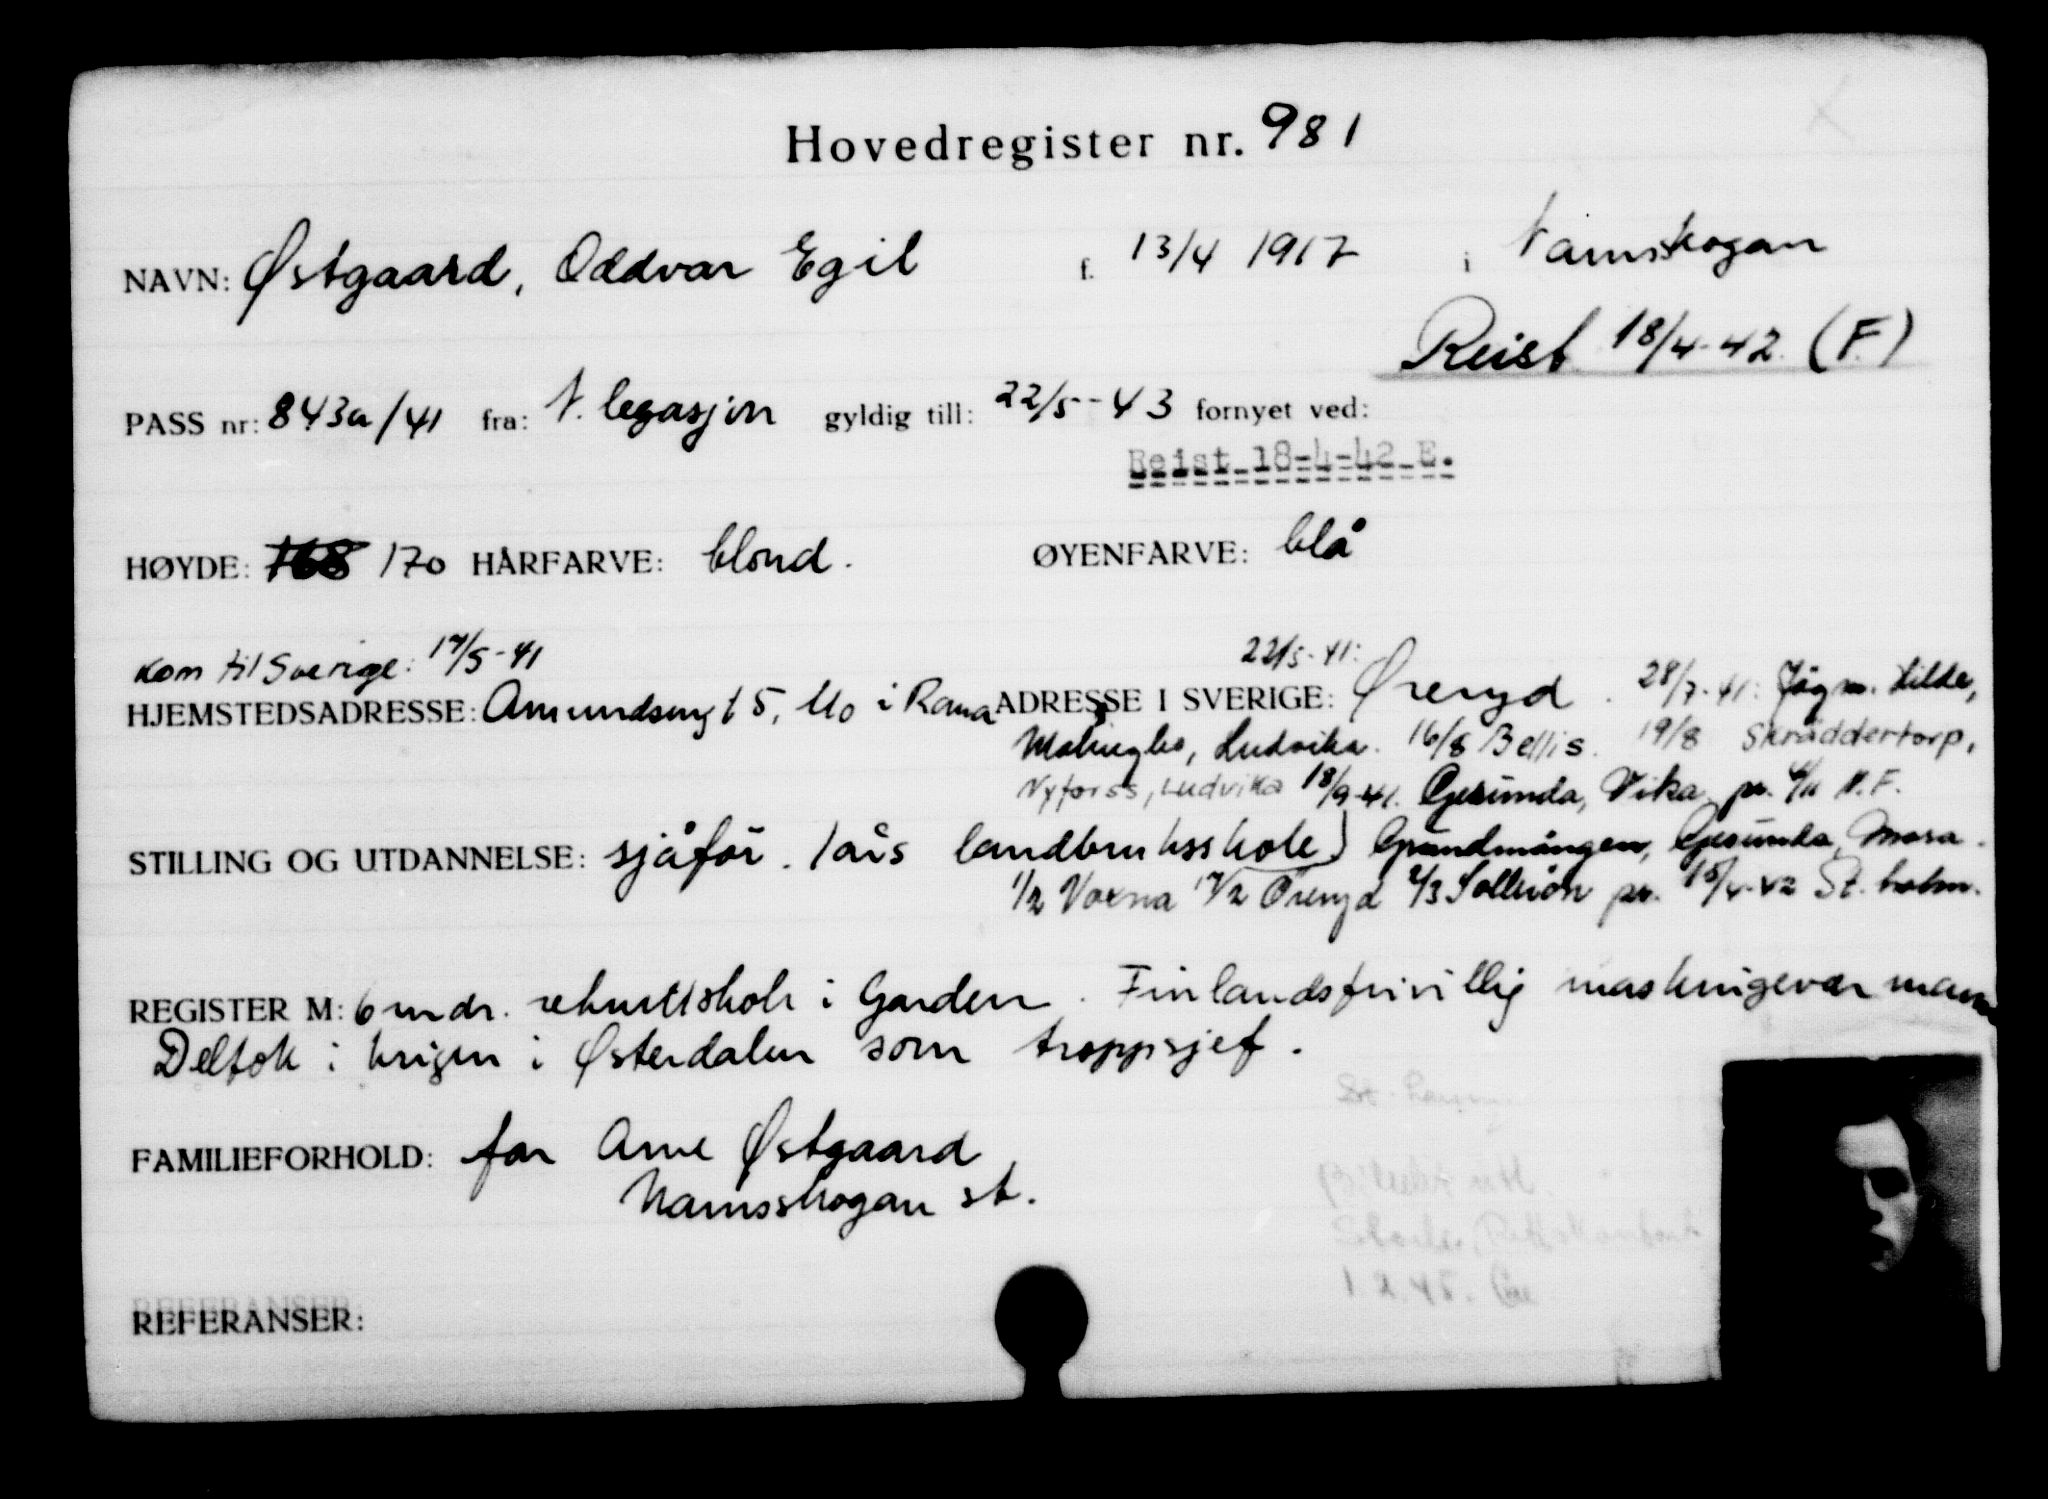 Hovedregister nr. 981
NAVN: Østgaard, Oddvar Egil f. 13/4 1917 i Namsskogan
Reist 18/4-42. (F.)
PASS nr: 843a/41 fra: N. legasjon gyldig till: 22/5-43 fornyet ved:
Reist 18-4-42 E.
HØYDE: 168 170 HÅRFARVE: blond. ØYENFARVE: blå
kom til Sverige: 17/5-41 22/5-41:
HJEMSTEDSADRESSE: Amundsensgt 5, Mo i Rana ADRESSE I SVERIGE: Øreryd. 28/7-41: Jägm. Lilde,
Malingsbo, Ludvika. 16/8 Bellis. 19/8 Skräddertorp,
Nyforss, Ludvika 18/9-41. Gesunda, Vika pr. 4/11 N.F.
STILLING OG UTDANNELSE: sjåfør. 1 års landbruksskole) Grundmången, Gesunda, Mora.
1/2 Voxna 17/2 Öreryd 2/3 Sollerön pr. 15/4-42 St. holm.
REGISTER M: 6 mdr. rekruttskole i Garden. Finlandsfrivillig maskingevær mann
Deltok i krigen i Østerdalen som troppsjef.
FAMILIEFORHOLD: far Arne Østgaard
Namsskogan st.
1.2.45.
REFERANSER: